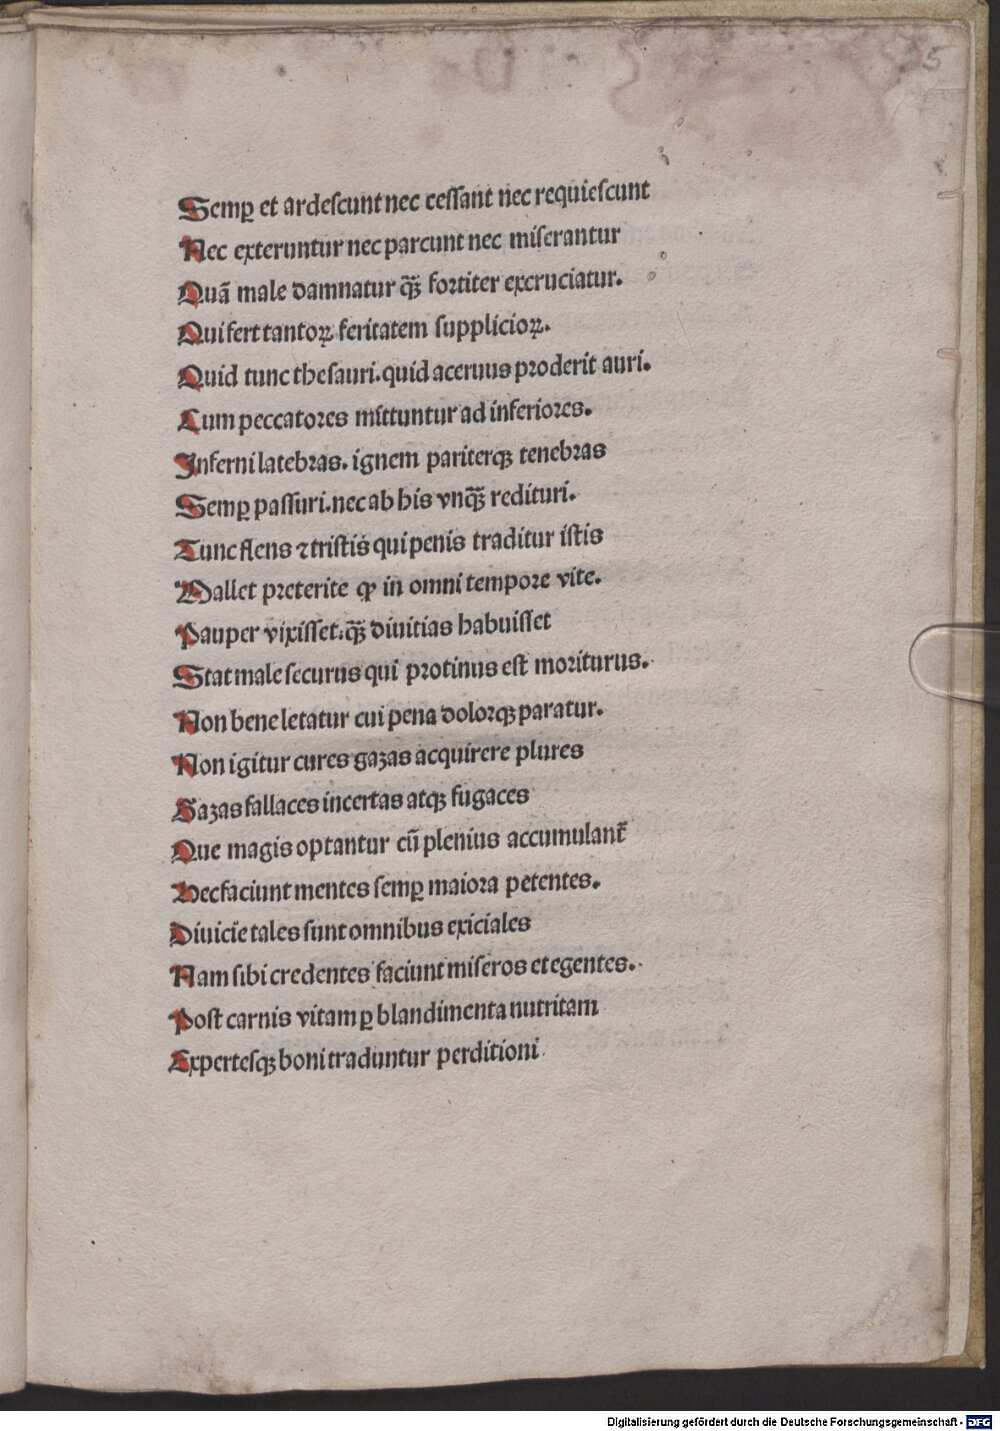 5
Semꝑ et ardeſcunt nec ceſſant nec requieſcunt
Nec exteruntur nec parcunt nec miſerantur
Quā male damnatur qͣ̄ꝫ fortiter excruciatur.
Qui fert tantoꝝ feritatem ſupplicioꝝ.
Quid tunc theſauri. quid aceruus proderit auri.
Cum peccatores mittuntur ad inferiores.
Inferni latebras. ignem pariterqꝫ tenebras
Semꝑ paſſuri. nec ab his vnqͣ̄ꝫ redituri.
Tunc flens ⁊ triſtis qui penis traditur iſtis
Mallet preterite ꝙ in omni tempore vite.
Pauper vixiſſet. qͣ̄ꝫ diuitias habuiſſet
Stat male ſecurus qui protinus eſt moriturus.
Non bene letatur cui pena dolorqꝫ paratur.
Non igitur cures gazas acquirere plures
Gazas fallaces incertas atqꝫ fugaces
Que magis optantur cū plenius accumulant᷑
Hec faciunt mentes ſemꝑ maiora petentes.
Diuicie tales ſunt omnibus exiciales
Nam ſibi credentes faciunt miſeros et egentes.
Poſt carnis vitam ꝑ blandimenta nutritam
Expertesqꝫ boni traduntur perditioni.
Digitalisierung gefördert durch die Deutsche Forschungsgemeinschaft - DFG